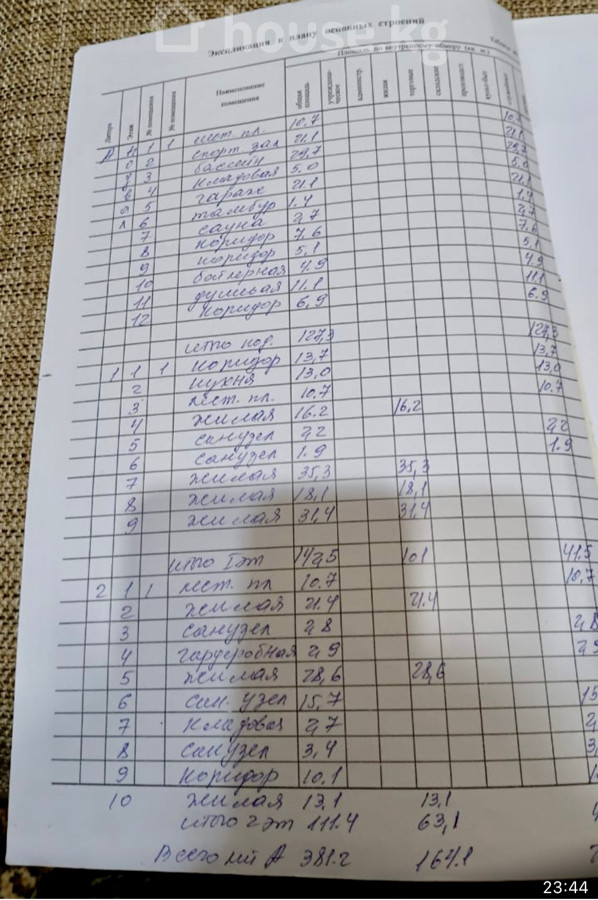 house.kg
Экспликация к плану основных строений
Площадь по внутреннему обмеру (кв. м.)
Литера Этаж № помещения № помещения Наименование помещения общая площадь учрежденческое администр. жилая торговая складская
10.7 10.7
А 1 1 лест. пл. 21,1 21,1
2 спорт зал 29,7 29,7
3 бассейн 5,0 5,0
4 кладовая 21,1 21,1
5 гараж 1.4 1.4
6 тамбур 2,7 2,7
7 сауна 7,6 7,6
8 коридор 5,1 5,1
9 коридор 4.9 4.9
10 бойлерная 11.1 11.1
11 душевая 6,9 6.9
12 коридор
итого под. 127,3 127,3
1 1 1 коридор 13,7 13,7
2 кухня 13,0 13,0
3 лест. пл. 10.7 10.7
4 жилая 16.2 16,2
5 санузел 2,2 2,2
6 санузел 1.9 1.9
7 жилая 35,3 35,3
8 жилая 18,1 18,1
9 жилая 31,4 31,4
итого I эт 142,5 101 41,5
2 1 1 лест. пл 10.7 10,7
2 жилая 21.4 21.4
3 санузел 2,8 2,8
4 гардеробная 2,9
5 жилая 28,6 28,6
6 сан. узел 15,7 15
7 кладовая 2,7
8 санузел 3,4
9 коридор 10,1
10 жилая 13,1 13,1
итого 2 эт 111.4 63,1
Всего А 381.2 164.1
23:44